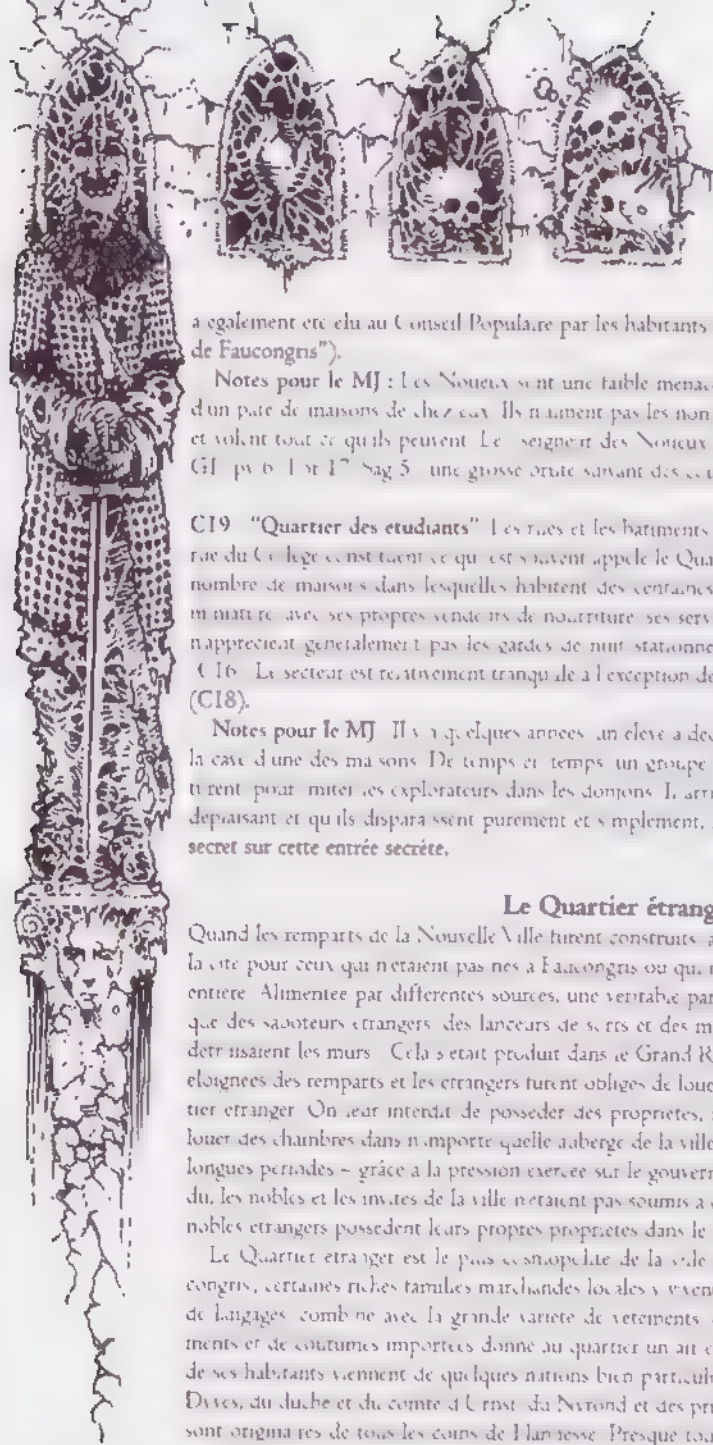 a également été élu au Conseil Populaire par les habitants
de Faucongris").
Notes pour le MJ : Les Noueux sont une faible menac
d'un pâté de maisons de chez eux. Ils n'aiment pas les non
et volent tout ce qu'ils peuvent. Le seigneur des Noueux
une grosse brute suivant des
C19 "Quartier des étudiants" Les rues et les bâtiments
rue du Collège constituent ce qui est souvent appelé le Qua
nombre de maisons dans lesquelles habitent des centaines
miniature avec ses propres vendeurs de nourriture ses serv
n'apprécient généralement pas les gardes de nuit stationne
C16 Le secteur est relativement tranquille à l'exception de
(C18).
Notes pour le MJ Il y a quelques années un élève a déc
la cave d'une des maisons. De temps en temps un groupe
tirent pour imiter les explorateurs dans les donjons. Il arri
déplaisant et qu'ils disparaissent purement et simplement,
secret sur cette entrée secrète.
Le Quartier étrang
Quand les remparts de la Nouvelle Ville furent construits a
la cité pour ceux qui n'étaient pas nés à Faucongris ou qui
entière. Alimentée par différentes sources, une véritable par
que des saboteurs étrangers des lanceurs de sorts et des m
détruisaient les murs Cela s'était produit dans le Grand R
éloignées des remparts et les étrangers furent obligés de loue
tier étranger. On leur interdit de posséder des propriétés,
louer des chambres dans n'importe quelle auberge de la ville
longues périodes – grâce à la pression exercée sur le gouvern
du, les nobles et les invités de la ville n'étaient pas soumis à
nobles étrangers possèdent leurs propres propriétés dans le
Le Quartier étranger est le plus cosmopolite de la ville
congris, certaines riches familles marchandes locales y viven
de langages combiné avec la grande variété de vêtements
ments et de coutumes importées donne au quartier un air
de ses habitants viennent de quelques nations bien particul
Dyves, du duché et du comté d'Urnst du Nyrond et des pri
sont originaires de tous les coins de Flannesse. Presque tou